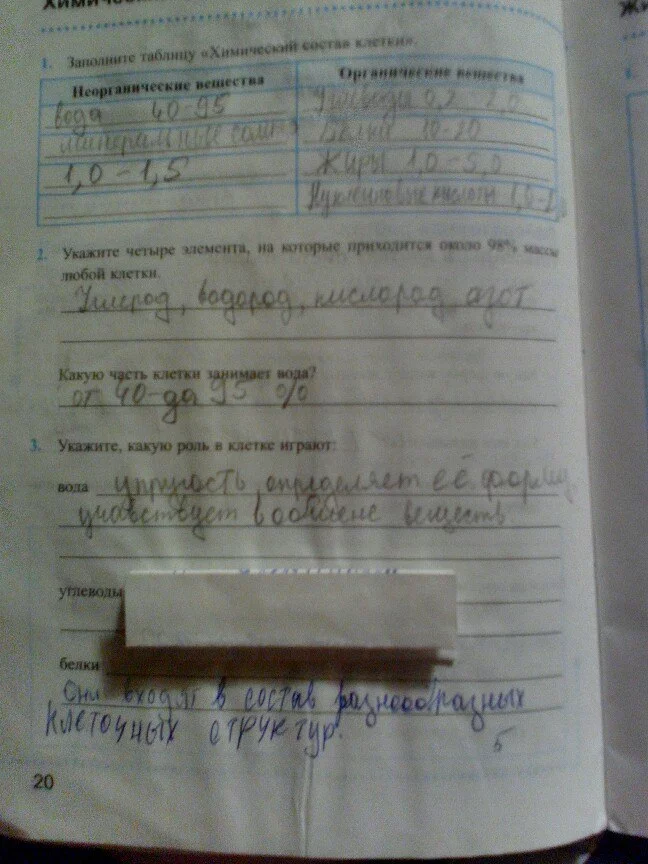 1. Заполните таблицу «Химический состав клетки».
Неорганические вещества
Органические вещества
вода 40-95
Углеводы 0,2 2,0
минеральные соли
Белки 10-20
1,0 - 1,5
Жиры 1,0 - 5,0
Нуклеиновые кислоты 1,0-2,
2. Укажите четыре элемента, на которые приходится около 98% массы
любой клетки.
Углерод, водород, кислород, азот
Какую часть клетки занимает вода?
от 40-да 95 %
3. Укажите, какую роль в клетке играют:
вода упругость, определяет её форму
учавствует в обмене веществ
углеводы
белки
Они входят в состав разнообразных
клеточных структур.
5
20